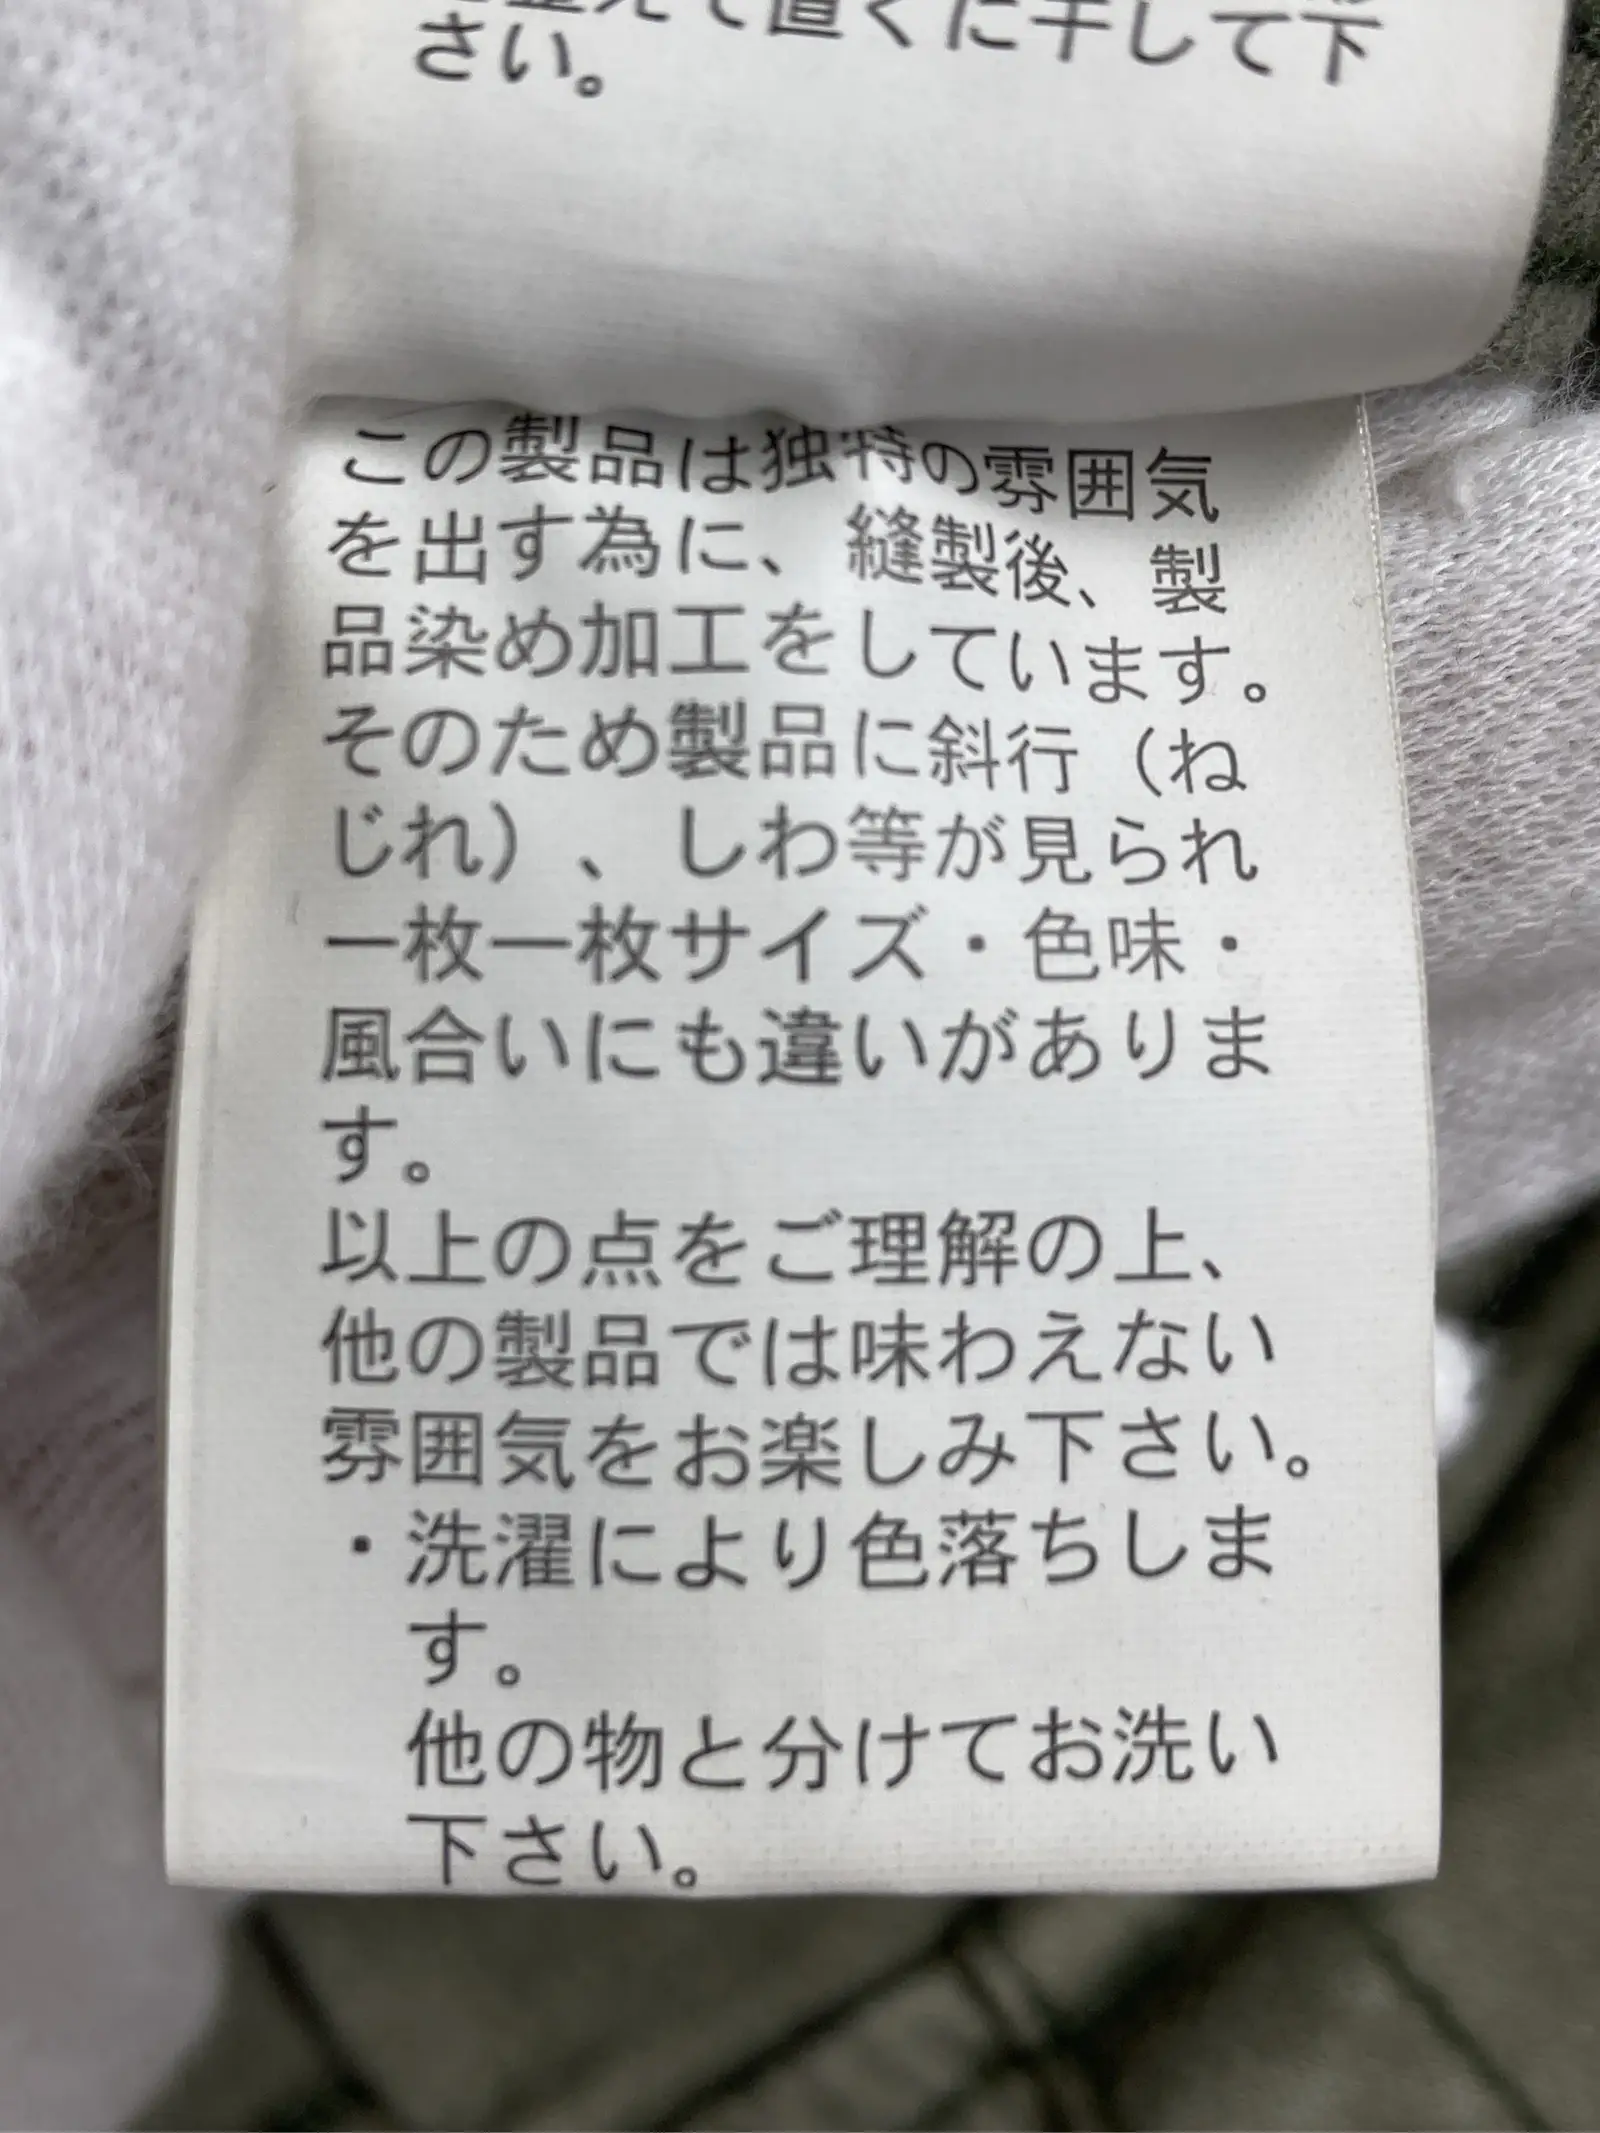 整えて直ぐに干して下
さい。
この製品は独特の雰囲気
を出す為に、縫製後、製
品染め加工をしています。
そのため製品に斜行（ね
じれ）、しわ等が見られ
一枚一枚サイズ・色味・
風合いにも違いがありま
す。
以上の点をご理解の上、
他の製品では味わえない
雰囲気をお楽しみ下さい。
・洗濯により色落ちしま
す。
他の物と分けてお洗い
下さい。